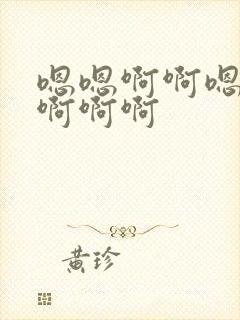 嗯嗯啊啊嗯
啊啊啊
黄珍